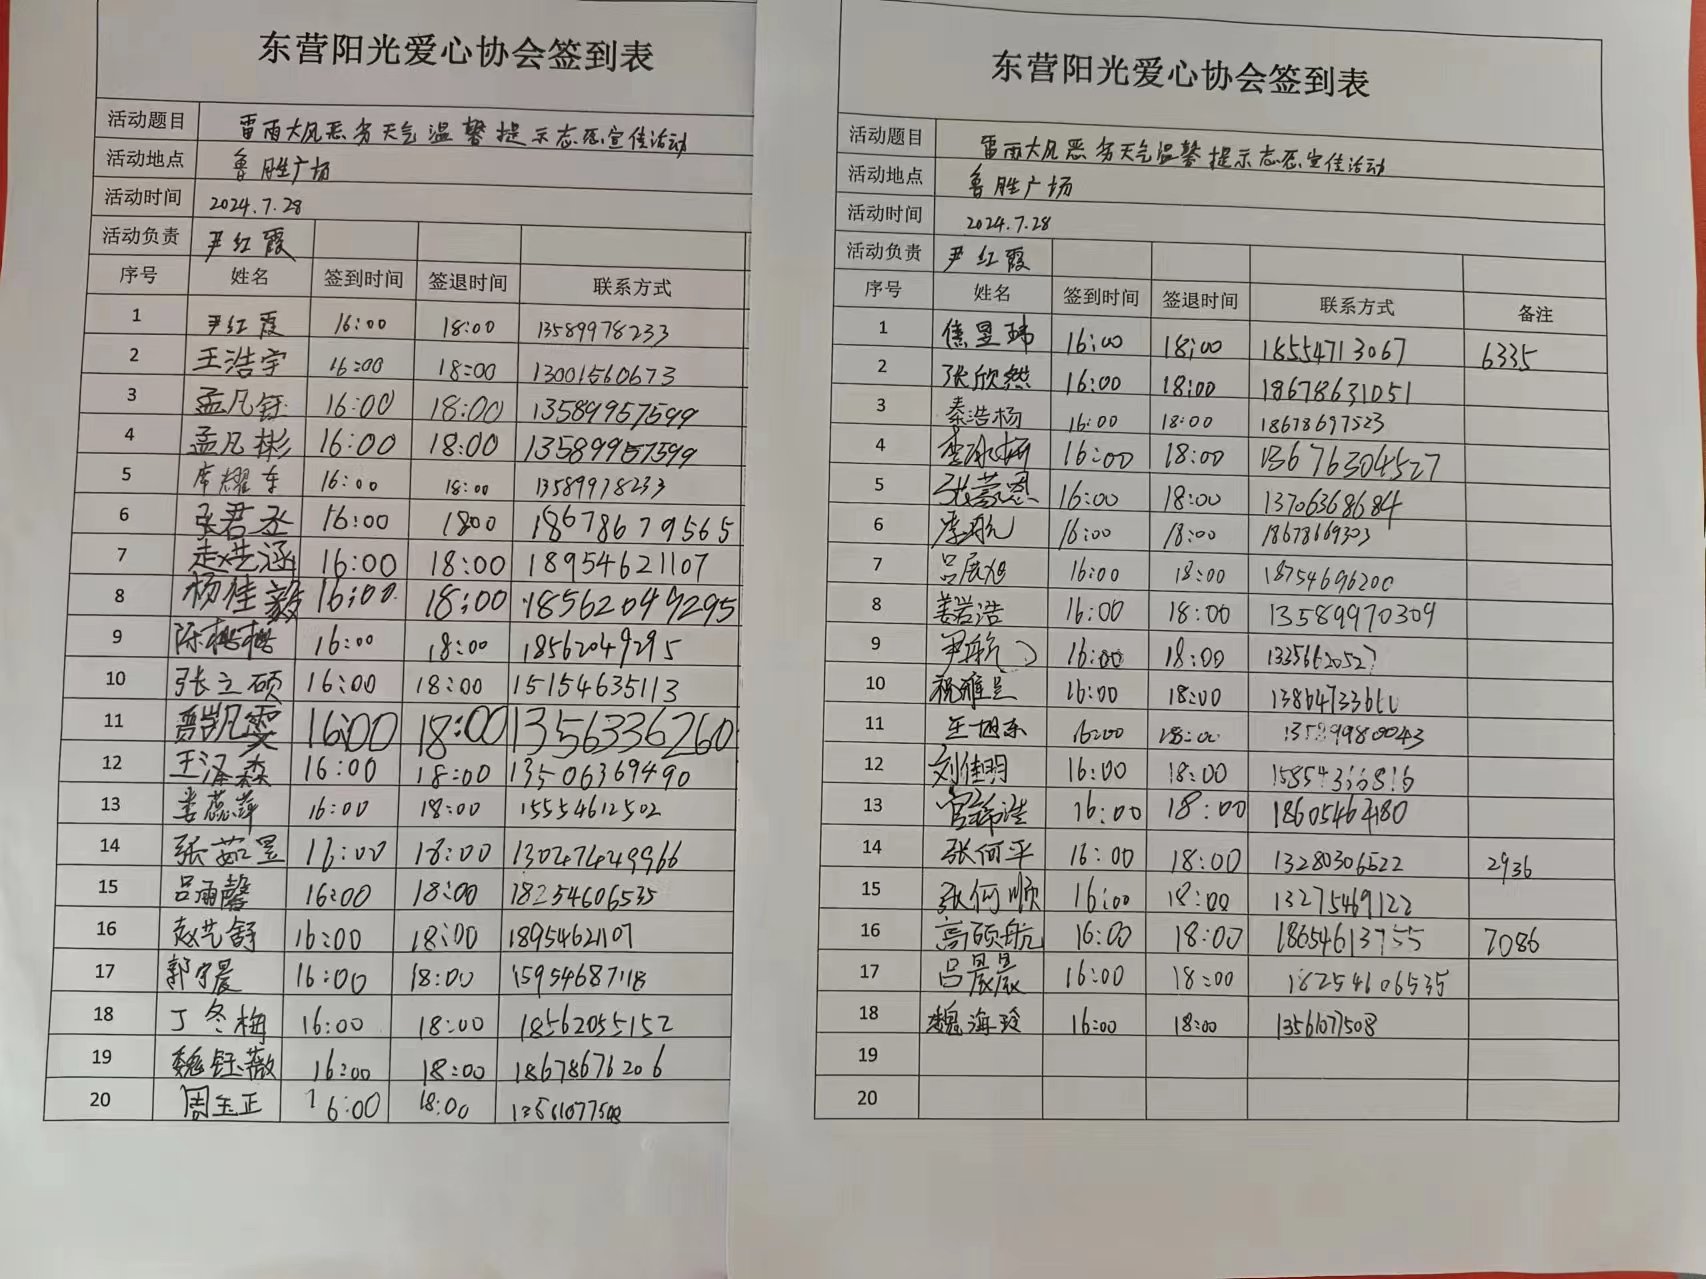 东营阳光爱心协会签到表
活动题目 雷雨大风恶劣天气温馨提示志愿宣传活动
活动地点 鲁胜广场
活动时间 2024.7.28
活动负责 尹红霞
序号 姓名 签到时间 签退时间 联系方式
1 尹红霞 16:00 18:00 13589978233
2 王浩宇 16:00 18:00 13001560673
3 孟凡钰 16:00 18:00 13589957599
4 孟凡彬 16:00 18:00 13589957599
5 席耀车 16:00 18:00 13589978233
6 张君丞 16:00 1800 18678679565
7 赵洪涵 16:00 18:00 18954621107
8 杨佳毅 16:00 18:00 18562049295
9 陈梅梅 16:00 18:00 18562049295
10 张立硕 16:00 18:00 15154635113
11 贾凯雯 16:00 18:00 1356336260
12 王泽森 16:00 18:00 13506369490
13 娄蕊萍 16:00 18:00 15554612502
14 张茹昱 16:00 18:00 13047449966
15 吕雨馨 16:00 18:00 18254606535
16 赵艺舒 16:00 18:00 18954621107
17 郭宇晨 16:00 18:00 15954687118
18 丁冬梅 16:00 18:00 18562055152
19 魏钰薇 16:00 18:00 18678676206
20 周玉正 16:00 18:00 13561077508
东营阳光爱心协会签到表
活动题目 雷雨大风恶劣天气温馨提示志愿宣传活动
活动地点 鲁胜广场
活动时间 2024.7.28
活动负责 尹红霞
序号 姓名 签到时间 签退时间 联系方式 备注
1 昱玮 16:00 18:00 18554713067 6335
2 张欣然 16:00 18:00 18678631051
3 秦浩杨 16:00 18:00 18678697523
4 李 16:00 18:00 13676304527
5 张蒙恩 16:00 18:00 13706368684
6 李航 16:00 18:00 18678669303
7 吕展旭 16:00 18:00 18754696200
8 姜岩浩 16:00 18:00 13589970309
9 尹航 16:00 18:00 13356620527
10 祝雅 16:00 18:00
11 王旭东 16:00 18:00 13589980043
12 刘佳明 16:00 18:00
13 官稀浩 16:00 18:00 18605464180
14 张何平 16:00 18:00 13280306522 2936
15 张何顺 16:00 18:00 13275469122
16 高硕航 16:00 18:00 18654613755 7086
17 吕晨晨 16:00 18:00 18254606535
18 魏海玲 16:00 18:00 13561077508
19
20